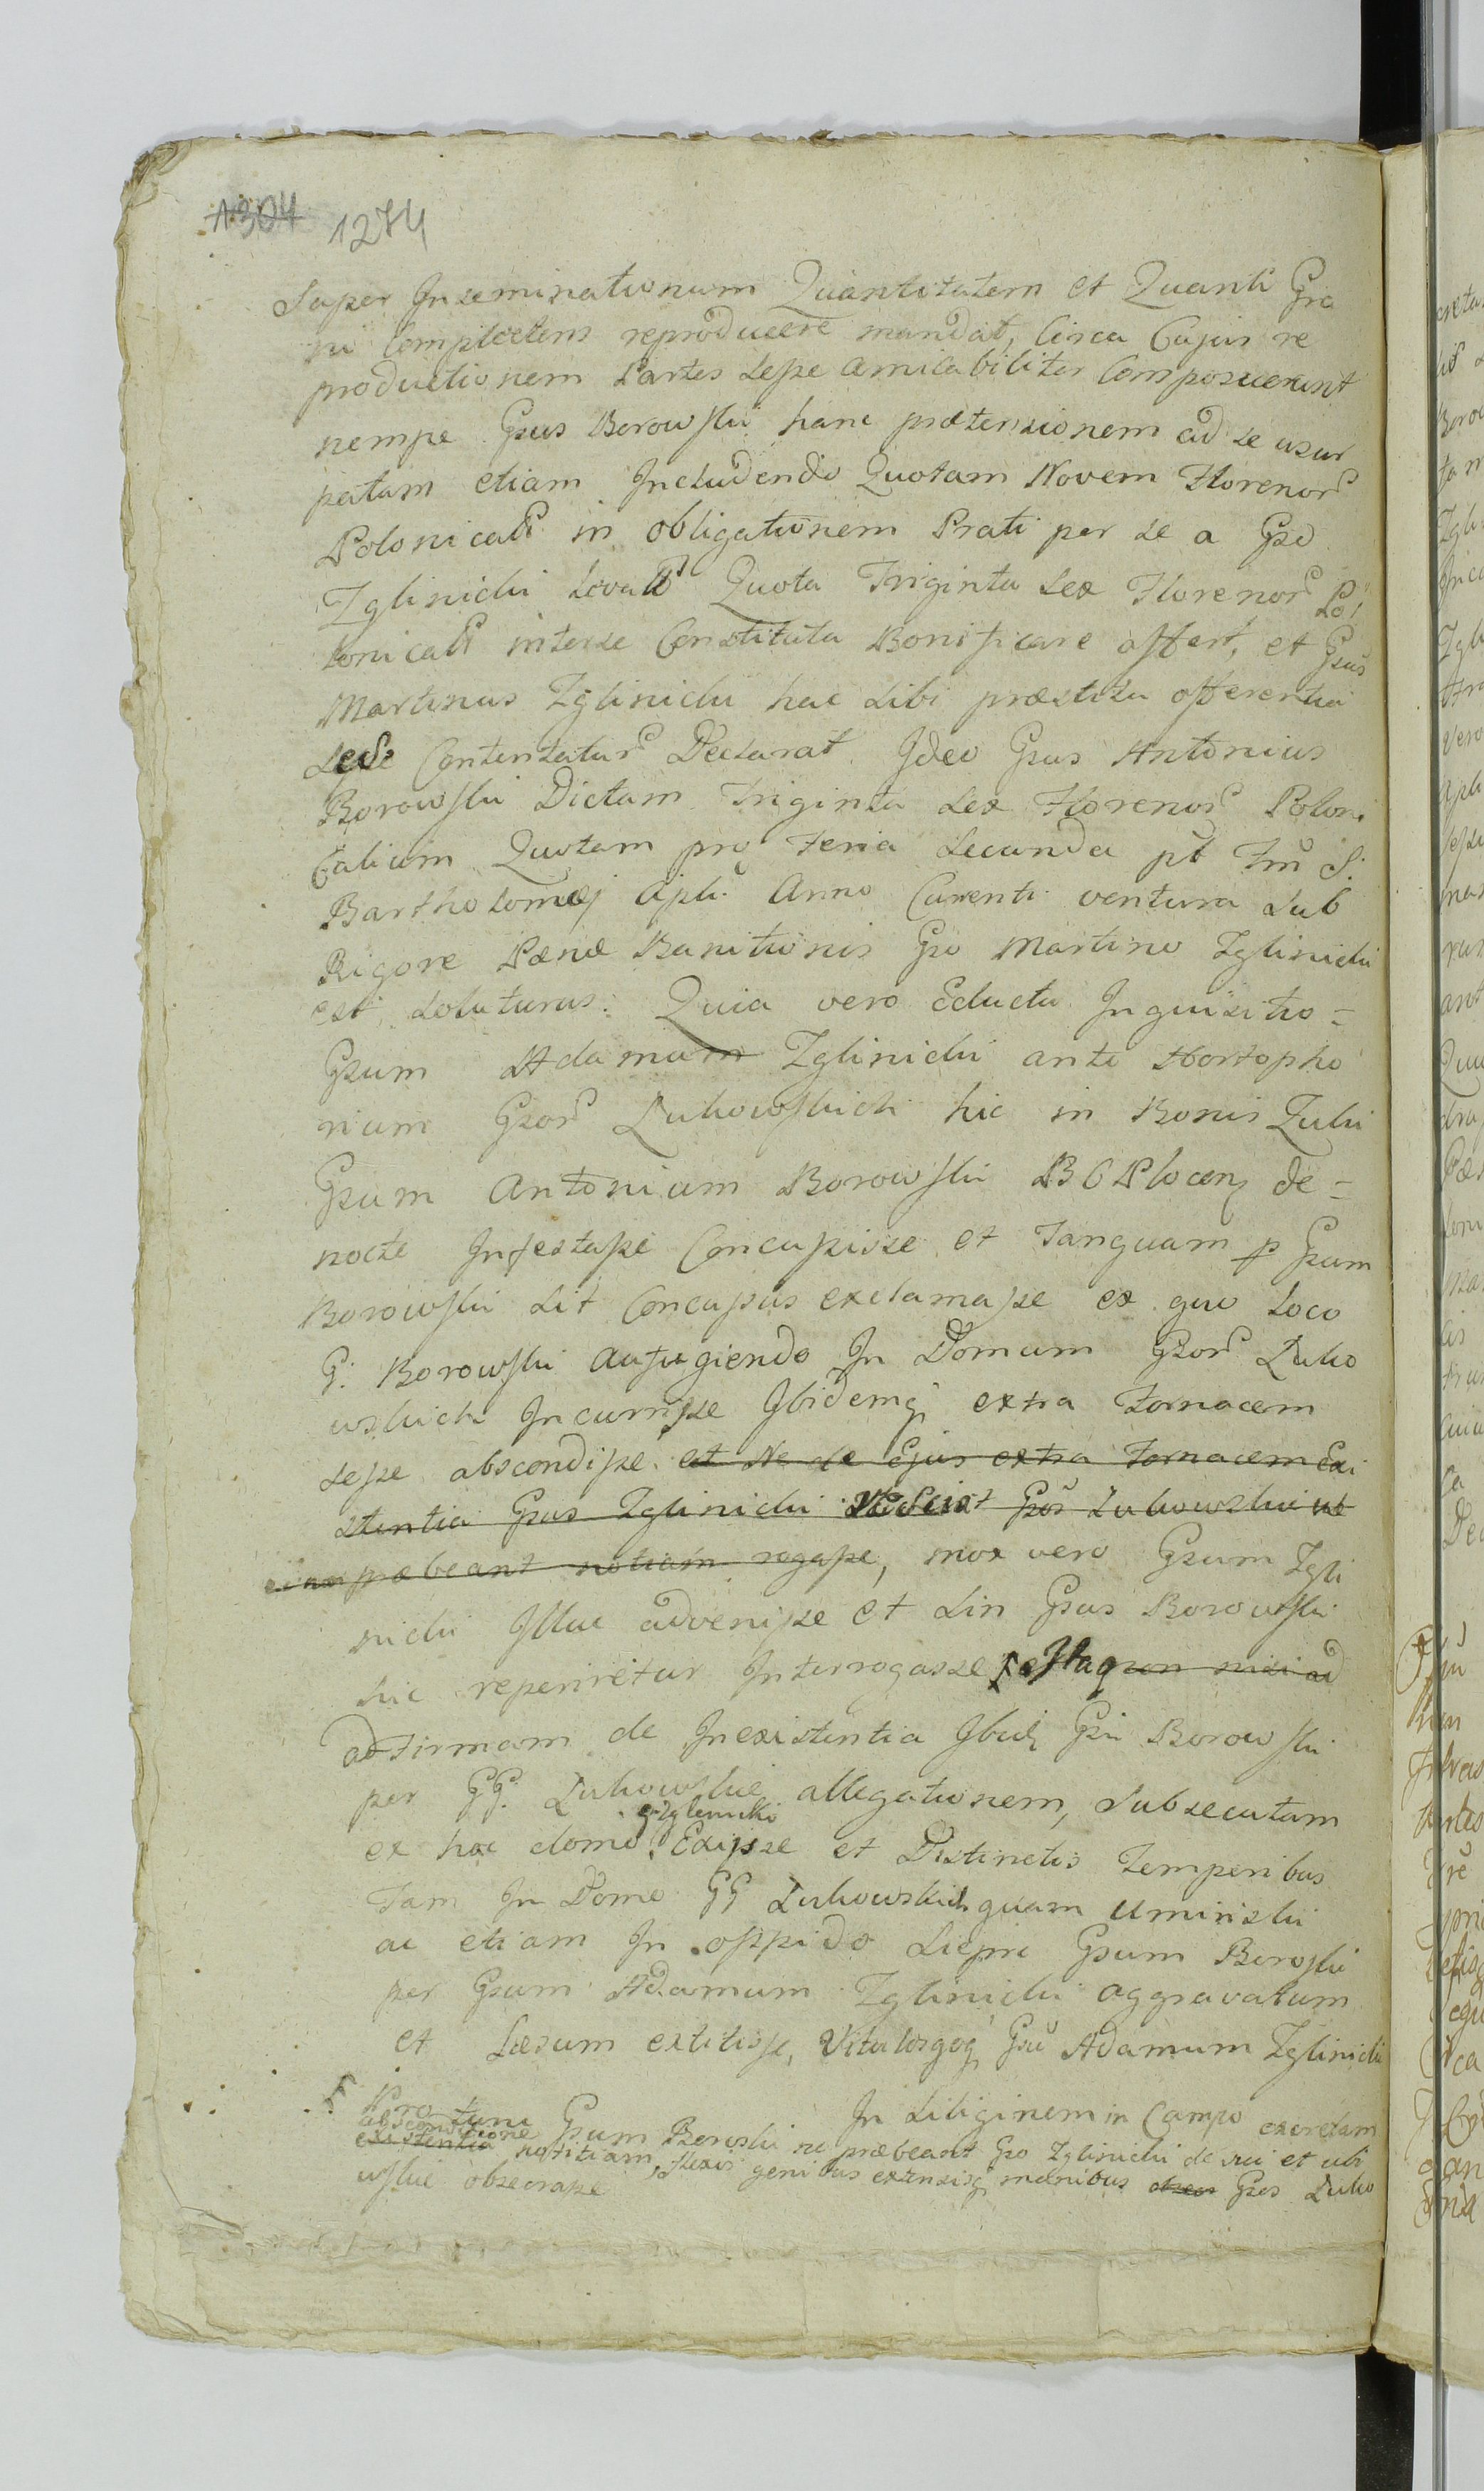 1304 1274
Super Inseminationum Quantitatem et Quanti Gra
ni Complectens reproducere mandat, Circa Cujus re
productionem Partes sese amicabiliter Composuerunt
nempe Gsus Borowski hanc prætensionem ad se usur
patam etiam Includendo Quotam Novem Florenor
Polonicali in obligationem Prati per se a Gso
Zglinicki Quota Triginta sex Florenor Po
lonicali interse Constituta Bonificare offert, et Gsus
Martinus Zglinicki hac sibi præstita offerentia
sese Contentatur Declarat. Ideo Gsus Antonius
Borowski Dictam Triginta sex Florenor Poloni
Calium Quotam pro Feria secunda pt Fm S.
Bartholomæj Apli Anno Currenti ventura sub
Rigore Pænæ Banitionis Gso Martino Zglinicki
est soluturus. Quia vero Educta Inquisitio=
Gsum Adamum Zglinicki ante Hortopho
nium Gsor Zukowskich hic in Bonis Zuki
Gsum Antonium Borowski B C Plocen de=
nocte Infestasse Concupisse et Tanquam p Gsum
Borowski sit Concussus exclamasse ex quo Loco
G. Borowski aufugiendo In Domum Gsor Zuko
wskich Incurrisse Ibidemq extra Fornacem
sese abscondisse. et Ne de Ejus extra Fornacem Exi
stentia Gsus Zglinicki Gsos Zukowskie ut
præbeant notiam rogasse, mox vero Gsum Zgli
nicki Illuc advenisse et sin Gsus Borowski
hic reperiretur Interrogasse non nisi ad
ad Firmam de Inexistentia Ibid Gsi Borowski
per GG. Zukowskie allegationem, subsecutam
G Zglenicki
ex hac domo Exisse et Distinctis Temporibus
Tam In Domo GG Zukowskich quam Uminski
ac etiam In oppido Siepri Gsum Boroski
per Gsum Adamum Zglinicki aggravatum
et Læsum extitisse, Gsu Adamum Zglinicki
In siliginem in Campo exoretam
Pro tunc Gsum Boroski ne præbeant Gso Zglinicki de sui et ubi
absconditione
existentia notitiam, flexis genibus extensisq manibus Gsos Zuko
wskie obsecrasse